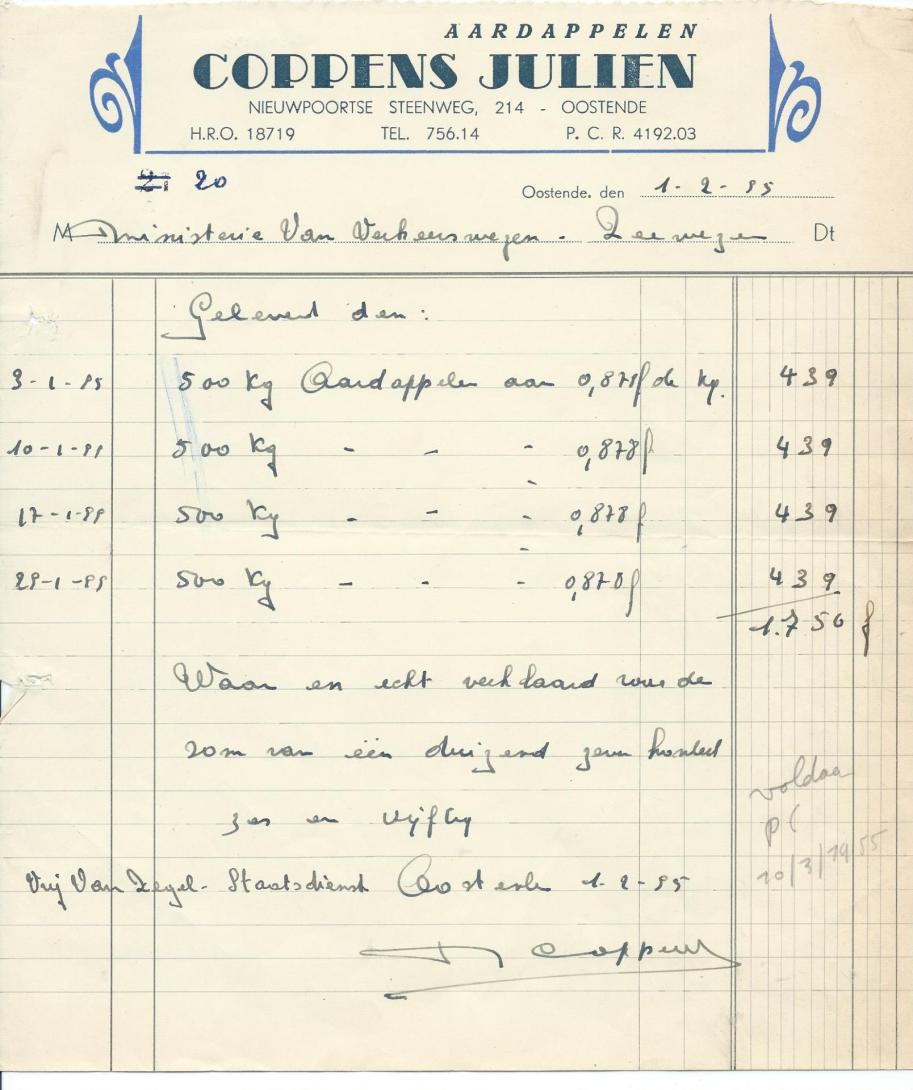 AARDAPPELEN
COPPENS JULIEN
NIEUWPOORTSE STEENWEG, 214 - OOSTENDE
H.R.O. 18719 TEL. 756.14 P. C. R. 4192.03
21 20
Oostende, den 1-2-55
M Ministerie Van Verkeerswezen - Zeewezen Dt
Geleverd den:
3-1-55 500 Kg Aardappelen aan 0,878 f de kg. 439
10-1-55 500 Kg - - - 0,878 f 439
17-1-55 500 Kg - - - 0,878 f 439
25-1-55 500 Kg - - - 0,878 f 439
1.756 f
Waar en echt verklaard voor de
som van één duizend zeven honderd
zes en vijftig
Vrij Van Zegel - Staatsdienst Oostende 1-2-55
voldaan
p(
10/3/1955
Coppens